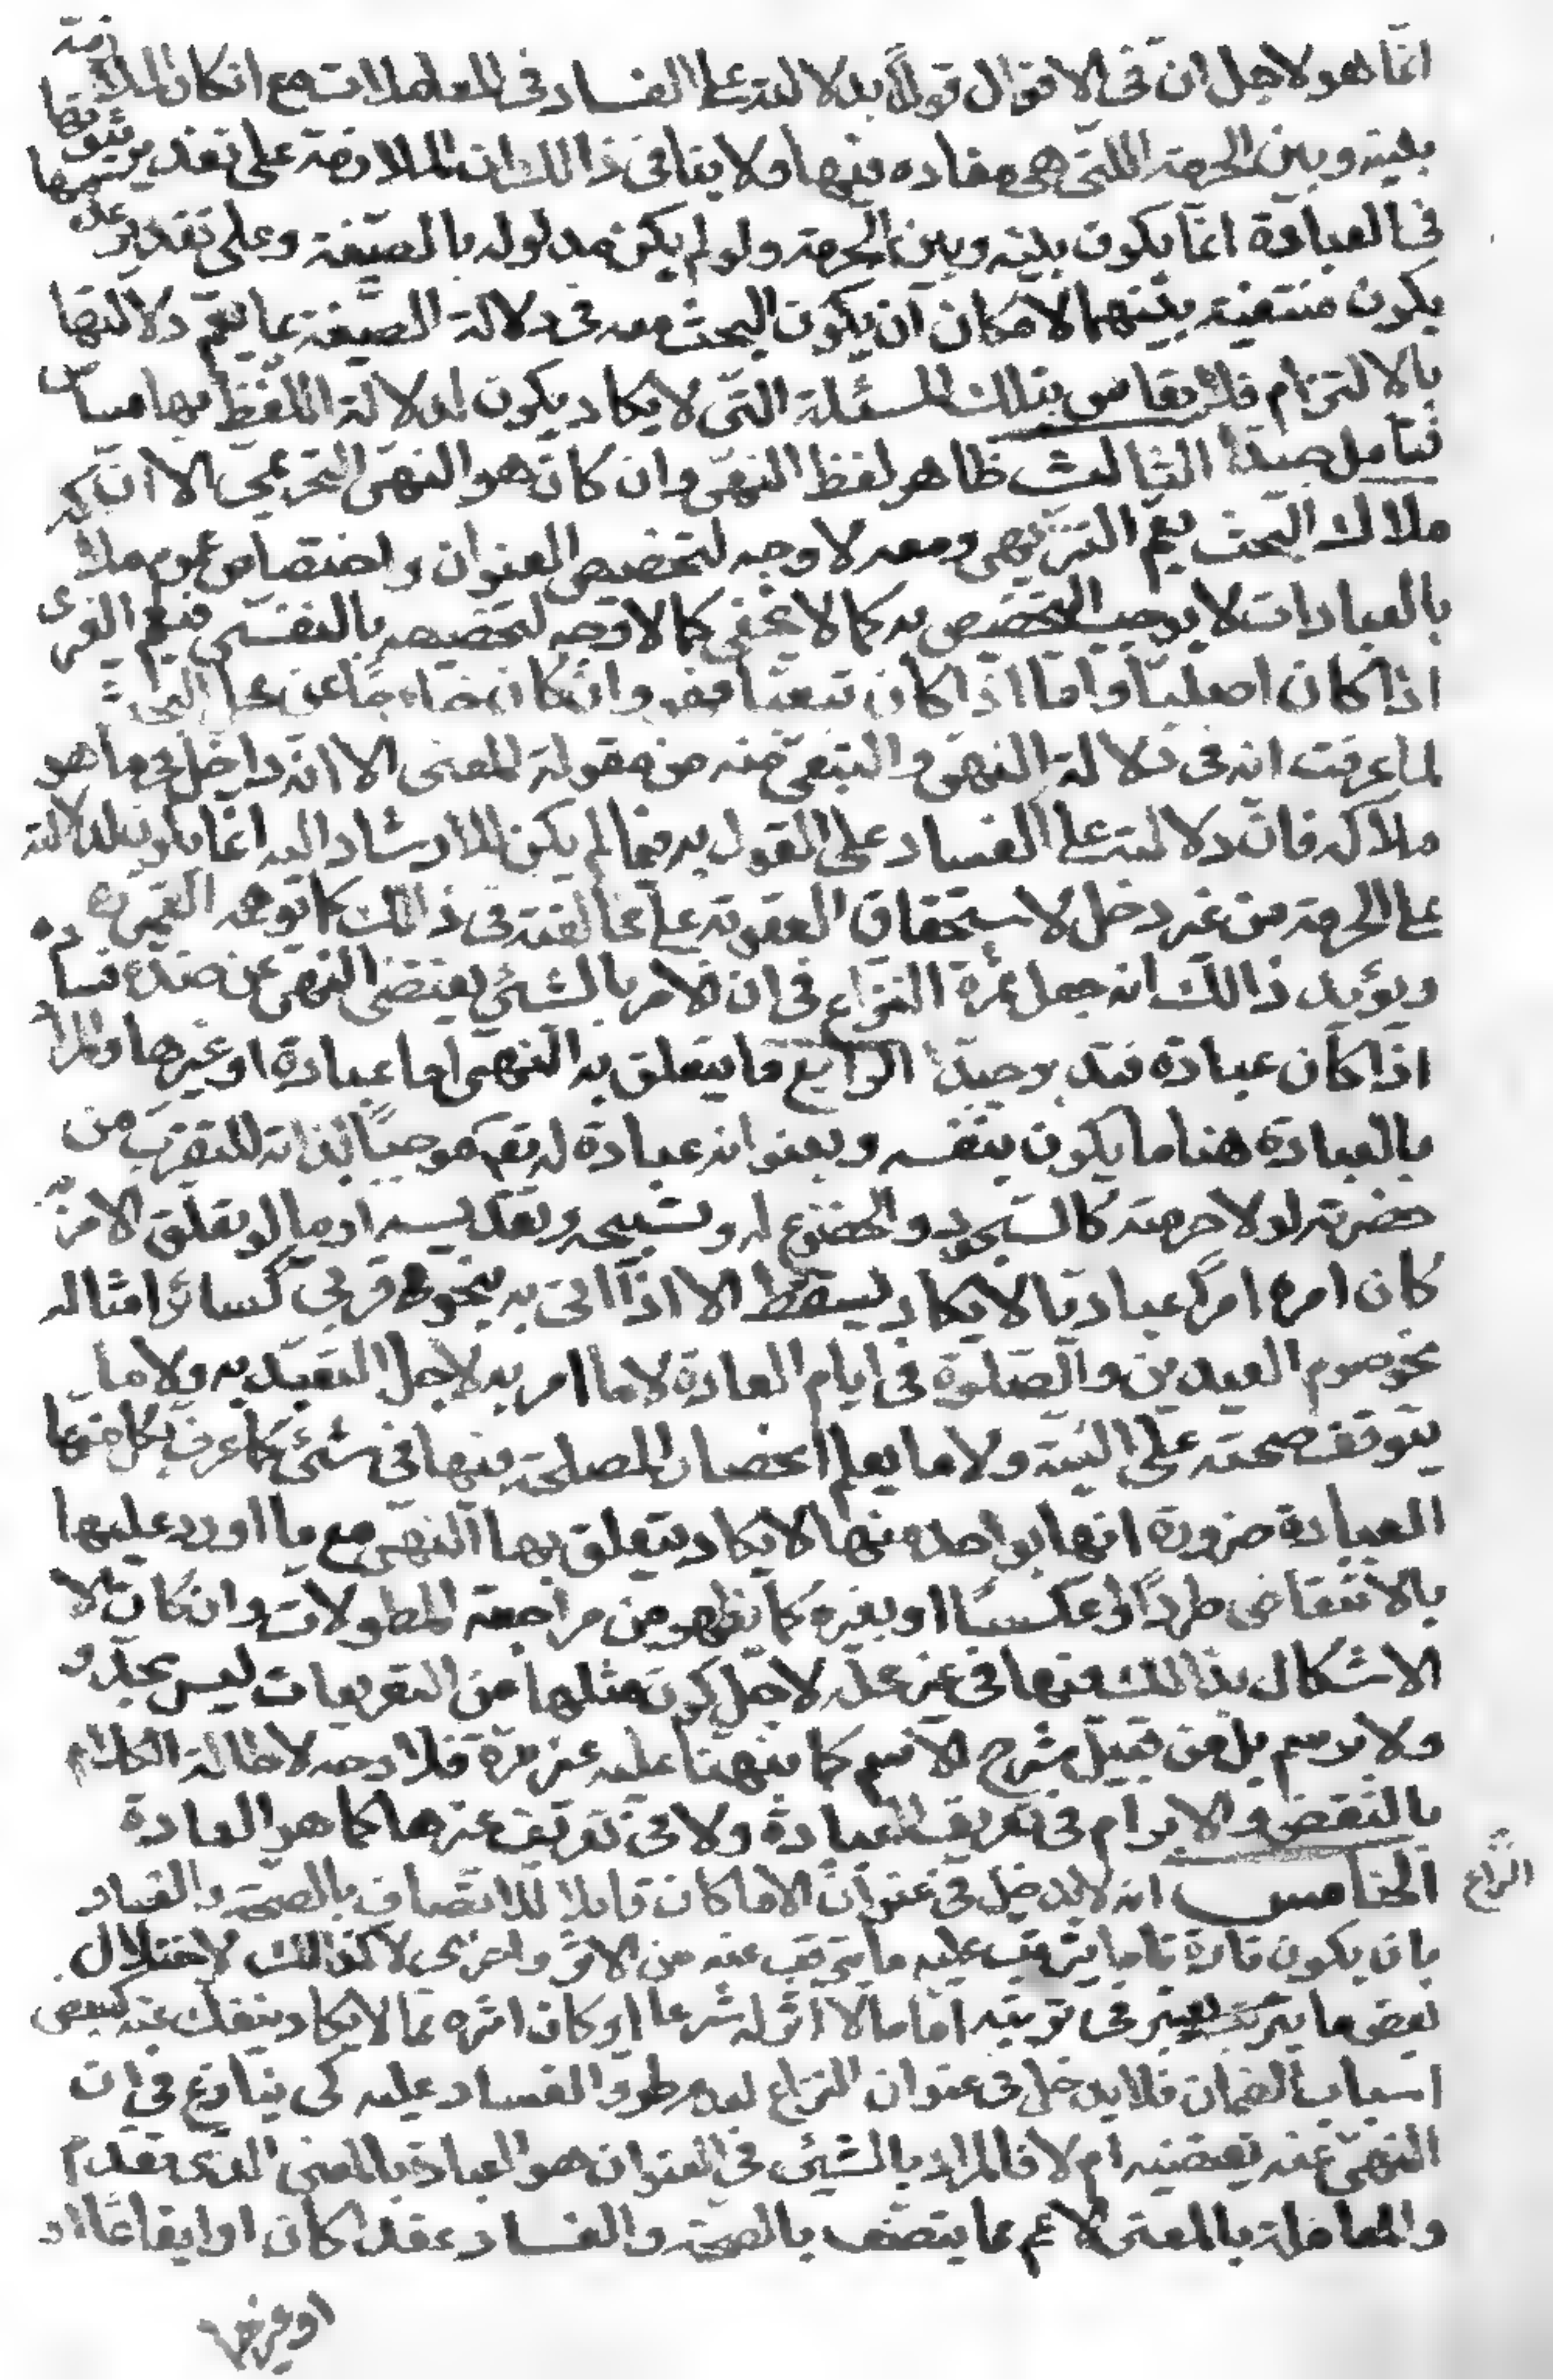 انّما هو لاجل انّ فى الاقوال قولاً بدلالته على الفساد فى المعاملات مع انكار الملازمة
بينه و بين الحرمة الّتى هى مفاده فيها و لا ينافى ذالك انّ الملازمة على تقدير ثبوتها
فى العبادة انّما يكون بينه و بين الحرمة و لو لم يكن مدلوله بالصّيغة و على تقدير عدمها
يكون منتفية بينهما لامكان ان يكون البحث معه فى دلالة الصّيغة بما يعمّ دلالتها
بالالتزام فلا يقاس بتلك المسئلة الّتى لا يكاد يكون لدلالة اللّفظ بها مساس
فتامل جيداً الثالث ظاهر لفظ النهى و ان كان هو النهى التحريمى الا انّ
ملاك البحث يعمّ التنزيهى و معه لا وجه لتخصيص العنوان و اختصاص عموم ملاكه
بالعبادات لا يوجب التخصيص به كما لا يخفى كما لا وجه لتخصيصه بالنفسى فيعم الغيرى
اذا كان اصليّاً و امّا اذا كان تبعيّاً فهو و ان كان خارجاً عن محل البحث
لما عرفت انه فى دلالة النهى و التبعى منه من مقولة المعنى الا انّه داخل فى ما هو
ملاكه فانّ دلالته على الفساد على القول به فيما لم يكن للارشاد اليه انّما يكون لدلالته
على الحرمة من غير دخل لاستحقاق العقوبة على مخالفته فى ذالك كما توهمه القمى ره
و يؤيد ذالك انه جعل ثمرة النزاع فى ان الامر بالشئ يقتضى النهى عن ضده فساده
اذا كان عبادة فتدبر جيداً الرابع ما يتعلق به النهى اما عبادة او غيرها و المراد
بالعبادة هنا ما يكون بنفسه و بعنوانه عبادة له تعم موجباً لذاته للتقرب من
حضرته لولا حرمته كالسجود و الخضوع له و تسبيحه و تقديسه او ما لو تعلق الامر به
كان امره امراً عباديا لا يكاد يسقط الا اذا اتى به بنحو قربى كسائر امثاله
نحو صوم العيدين و الصّلوة فى ايام العادة لا ما امر به لاجل التعبّد به و لا ما
يتوقف صحته على النيّة و لا ما يعلم انحصار المصلحة فيها فى شئ كما عرف بكل منها
العبادة ضرورة انها بواحد منها لا يكاد يتعلق بها النهى مع ما اورد عليها
بالانتقاض طرداً او عكساً او بغيره كما يظهر من مراجعة المطولات و ان كان
الاشكال بذالك فيها فى غير محلّه لاجل كون مثلها من التعريفات ليس بحدّ و
و لا برسم بل من قبيل شرح الاسم كما نبهنا عليه غير مرّة فلا وجه لاطالة الكلام
بالنقض و الابرام فى تعريف العبادة و لا فى تعريف غيرها كما هو العادة
الخامس انه لا يدخل فى عنوان الا ما كان قابلا للاتّصاف بالصحّة و الفساد
النّزاع
بان يكون تارة تاما يترتب عليه ما يترقب عنه من الاثر و اخرى لا كذالك لاختلال
بعض ما يعتبر فى ترتبه امّا ما لا اثر له شرعا او كان اثره مما لا يكاد ينفك عنه كبعض
اسباب الضمان فلا يدخل فى عنوان النزاع لعدم طروّ الفساد عليه كى ينازع فى ان
النهى عنه يقتضيه ام لا فالمراد بالشيئ فى العنوان هو العبادة بالمعنى الذى تقدم
و المعاملة بالمعنى الاعم مما يتصف بالصحة و الفساد عقداً كان او ايقاعاً او
او غيرهما